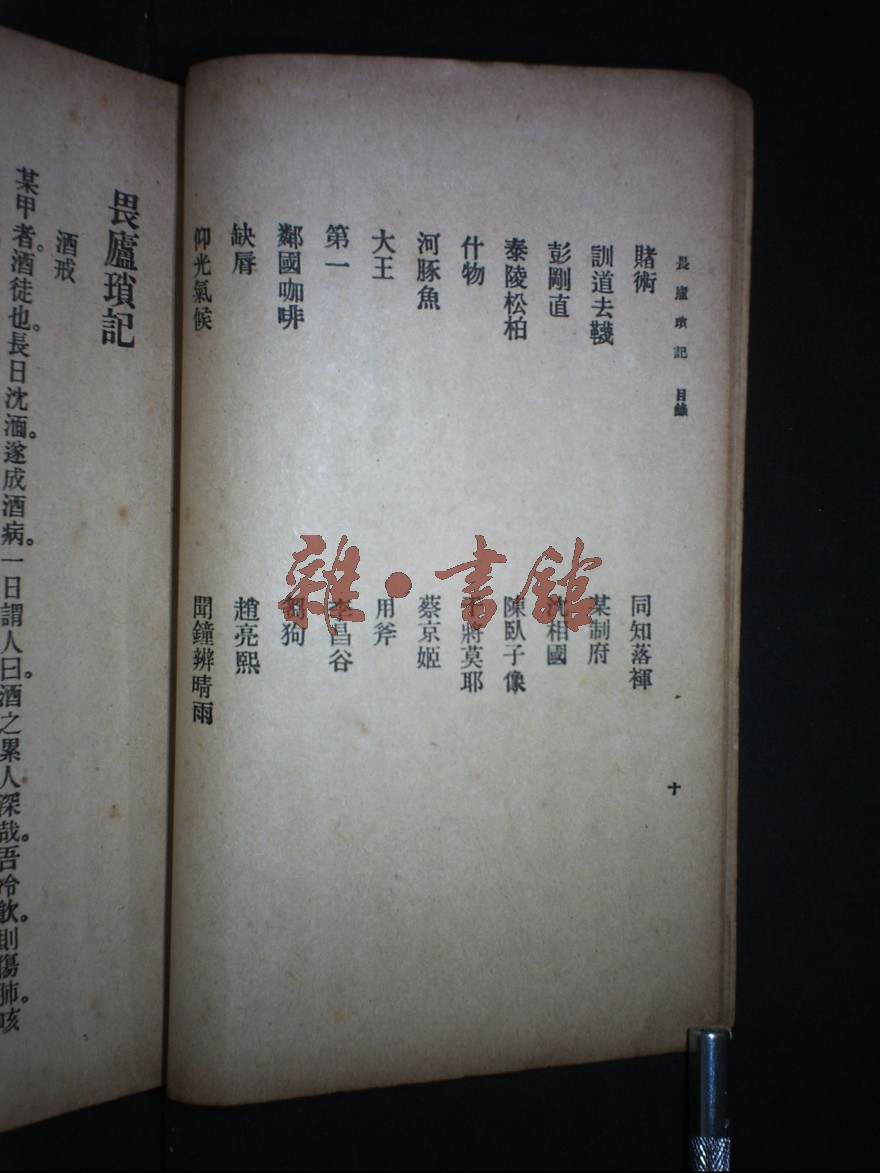 畏廬瑣記 目錄
十
賭術 同知落褌
訓道去韈 某制府
彭剛直 沈相國
泰陵松柏 陳臥子像
什物 干將莫耶
河豚魚 蔡京姬
大王 用斧
第一 李昌谷
鄰國咖啡 狗
缺脣 趙亮熙
仰光氣候 聞鐘辨晴雨
畏廬瑣記
酒戒
某甲者。酒徒也。長日沈湎。遂成酒病。一日謂人曰。酒之累人深哉。吾冷飲。則傷肺。咳
雜·書館